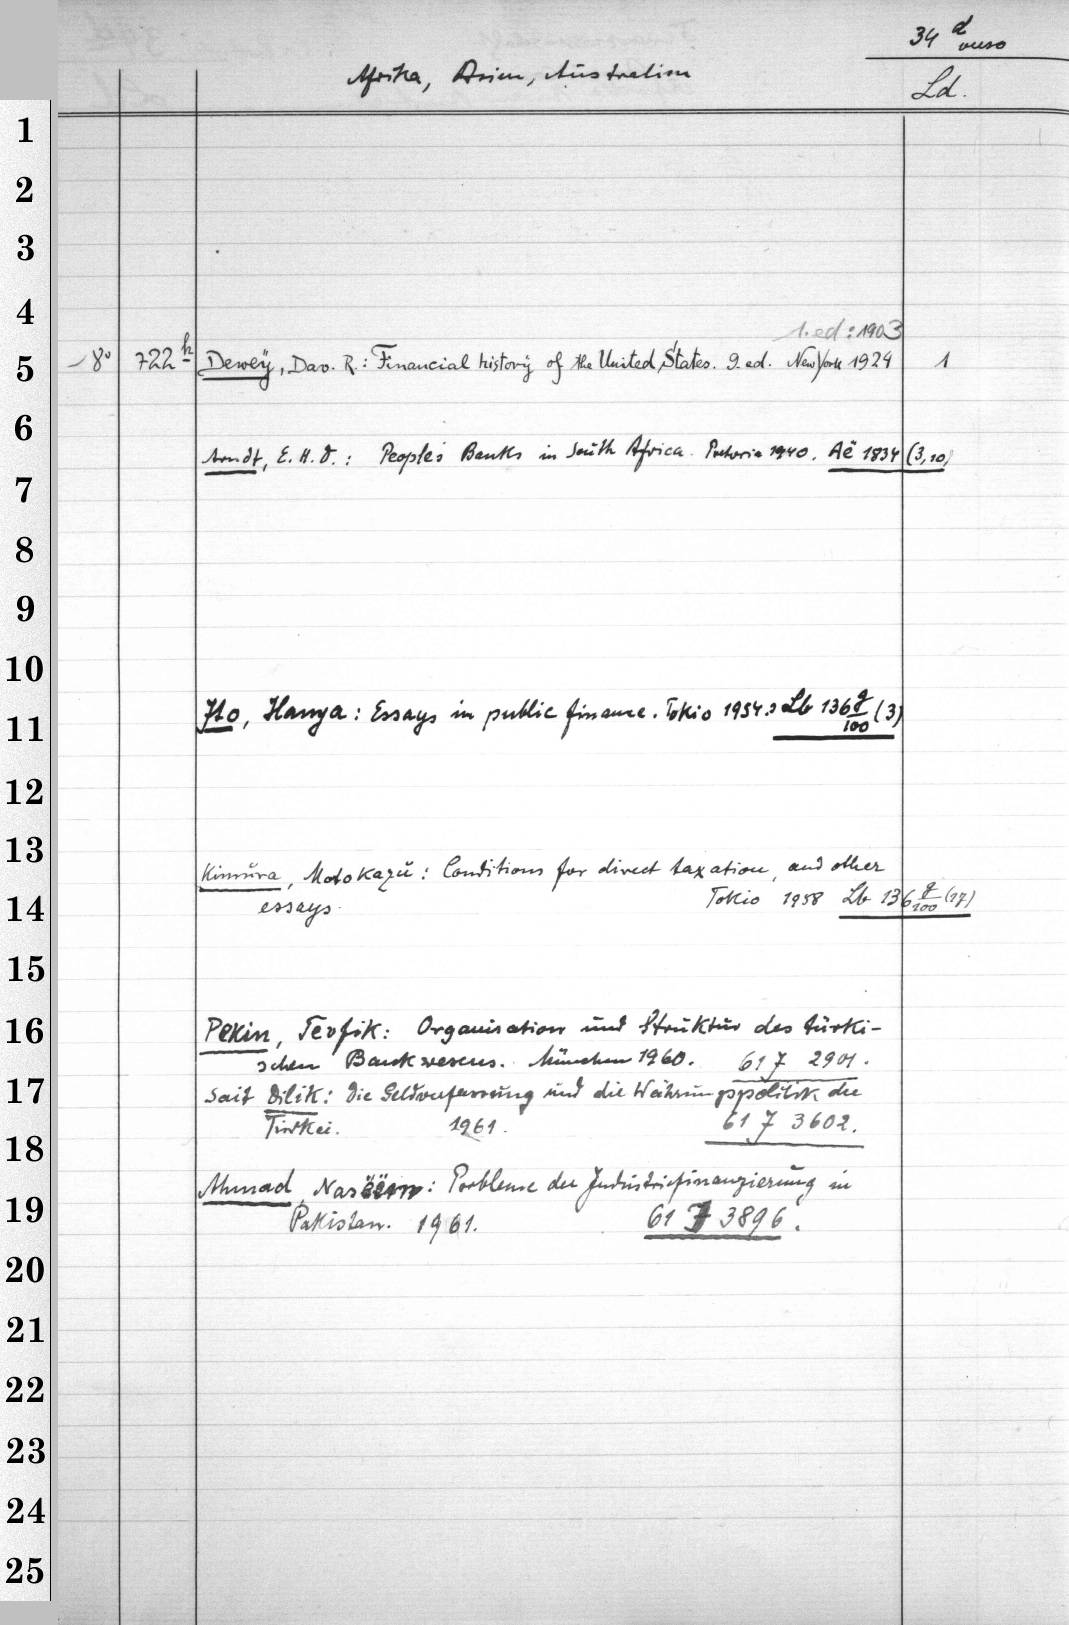 34 d
verso
Afrika, Asien, Australien
Ld.
1
2
3
4
1. ed: 1903
5 8° 722 h Dewey, Dav. R.: Financial history of the United States. 9. ed. New York 1924 1
6
Arndt, E. H. D.: People's Banks in South Africa. Pretoria 1940. Aë 1834 (3,10)
7
8
9
10
11 Ito, Hanya: Essays in public finance. Tokio 1954.: Lb 136 g/100 (3)
12
13
Kimura, Motokazu: Conditions for direct taxation, and other
14 essays. Tokio 1958 Lb 136 g/100 (17)
15
16 Pekin, Tevfik: Organisation und Struktur des türki-
schen Bankwesens. München 1960. 61 7 2901.
17 Sait Dilik: Die Geldverfassung und die Währungspolitik der
Türkei. 1961. 61 7 3602.
18
Ahmad, Naseem: Probleme der Industriefinanzierung in
19 Pakistan. 1961. 61 7 3896.
20
21
22
23
24
25